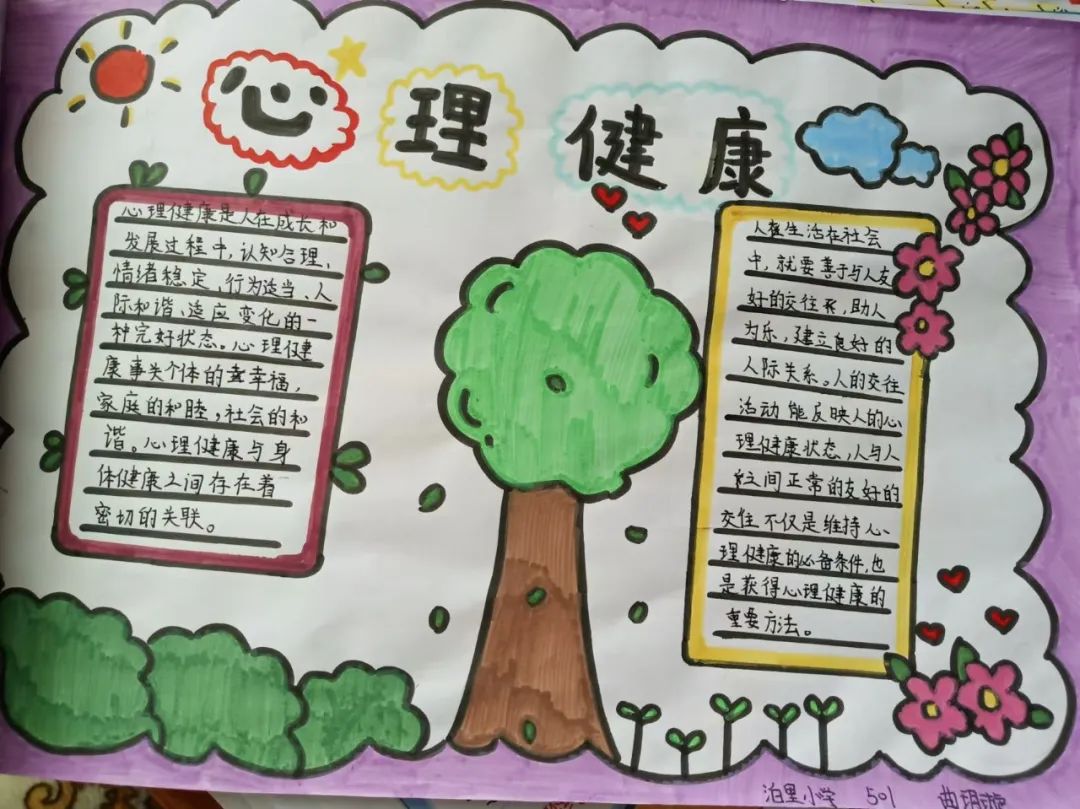 心理健康
心理健康是人在成长和
发展过程中,认知合理、
情绪稳定、行为适当、人
际和谐、适应变化的一
种完好状态。心理健
康事关个体的幸福,
家庭的和睦,社会的和
谐。心理健康与身
体健康之间存在着
密切的关联。
生活在社会
中,就要善于与人友
好的交往,助人
为乐,建立良好的
人际关系。人的交往
活动能反映人的心
理健康状态,人与人
之间正常的友好的
交往不仅是维持心
理健康的必备条件,也
是获得心理健康的
重要方法。
泊里小学 501 曲